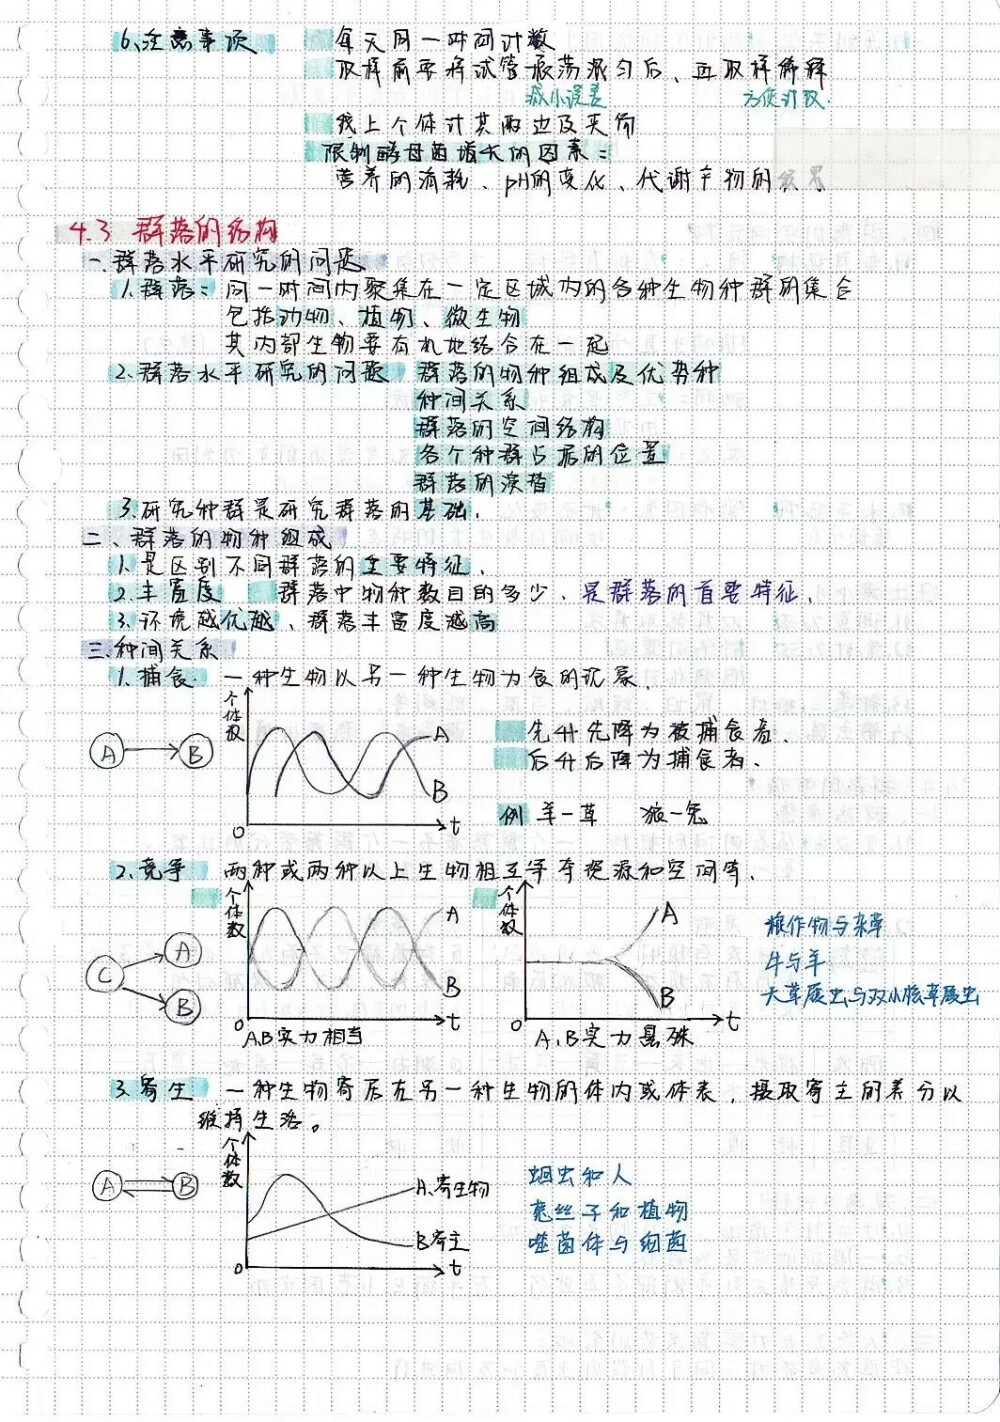 6、注意事项 每天同一时间计数
取样前要将试管振荡混匀后、再取样稀释
减小误差 方便计数.
线上个体计其两边及夹角
限制酵母菌增长的因素:
营养的消耗、pH的变化、代谢产物的
4.3 群落的结构
一.群落水平研究的问题
1.群落: 同一时间内聚集在一定区域内的各种生物种群的集合
包括动物、植物、微生物
其内部生物要有机地结合在一起
2.群落水平研究的问题 群落的物种组成及优势种
种间关系
群落的空间结构
各个种群占居的位置
群落的演替
3.研究种群是研究群落的基础.
二、群落的物种组成
1.是区别不同群落的主要特征.
2.丰富度 群落中物种数目的多少. 是群落的首要特征.
3.环境越优越、群落丰富度越高
三.种间关系
1.捕食 一种生物以另一种生物为食的现象.
个体数 A B O t
A B
先升先降为被捕食者.
后升后降为捕食者.
例 羊-草 狼-兔
2.竞争 两种或两种以上生物相互争夺资源和空间等.
个体数 A B O t
个体数 A B O t
C A B
粮作物与杂草
牛与羊
大草履虫与双小核草履虫
A,B实力相当 A、B实力悬殊
3.寄生 一种生物寄居在另一种生物的体内或体表,摄取寄主的养分以
维持生活。
个体数 A.寄生物 B寄主 O t
A B
蛔虫和人
菟丝子和植物
噬菌体与细菌